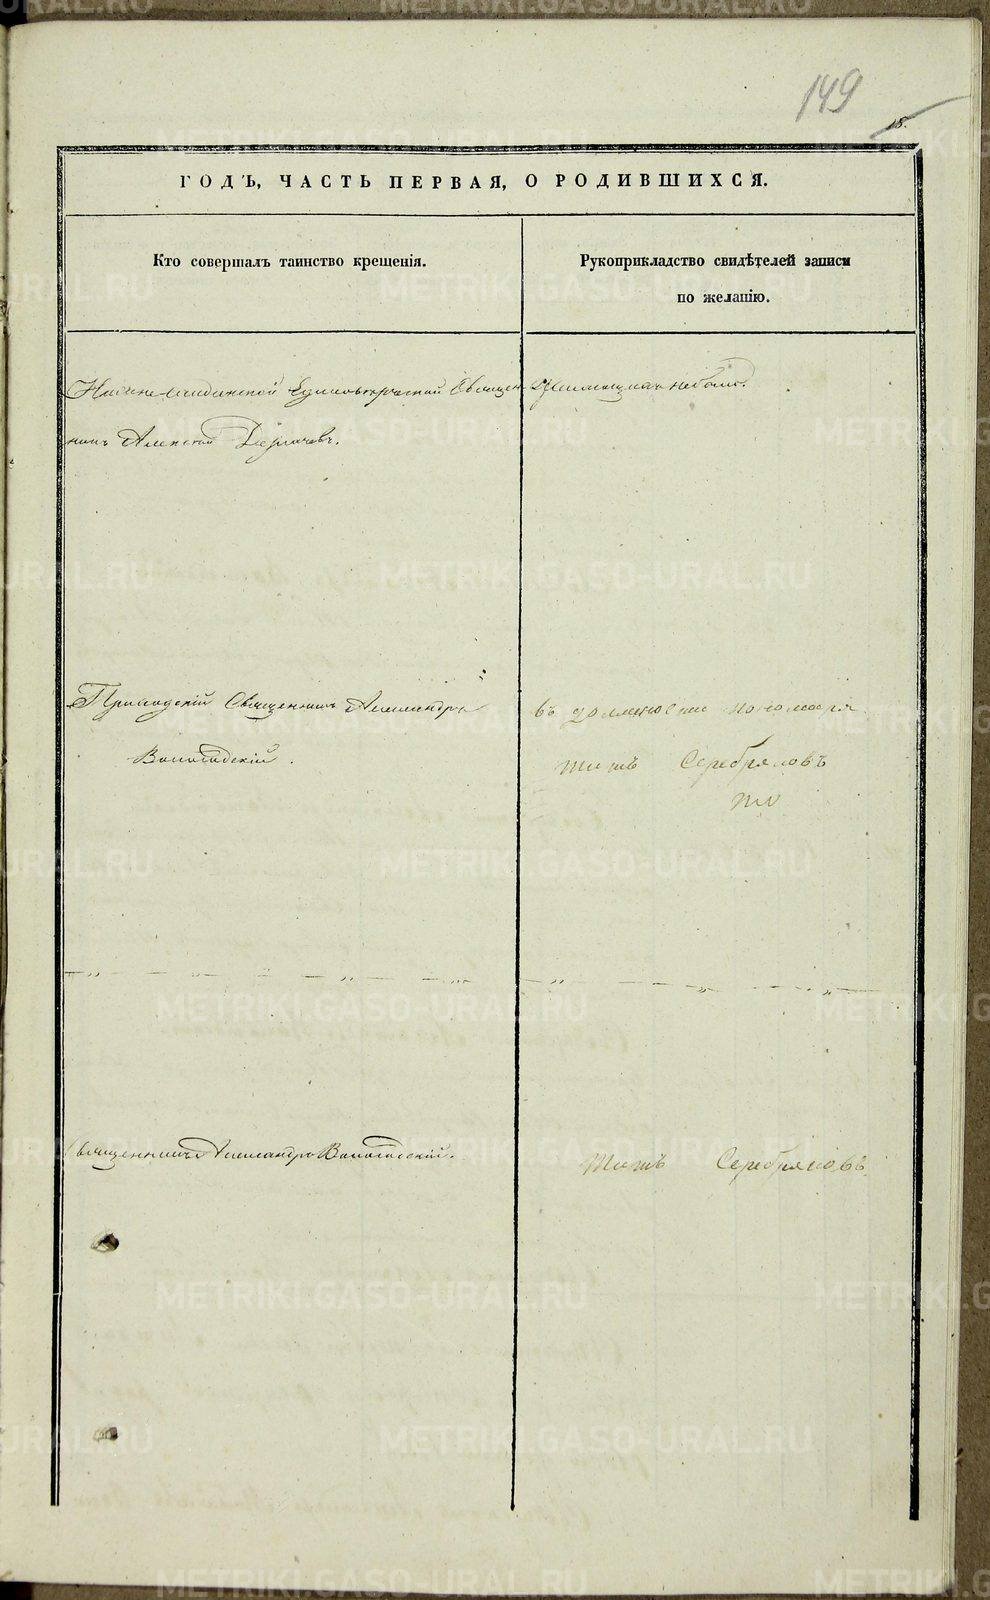 149
15.
ГОДЪ, ЧАСТЬ ПЕРВАЯ, О РОДИВШИХСЯ.
Кто совершалъ таинство крещенія.
Рукоприкладство свидѣтелей записи
по желанію.
Единовѣрческой Священ-
никъ Алексей
небыло.
Приходскій Священникъ Александръ
Вологодскій.
въ должности пономаря
Титъ Серебряковъ
Священникъ Александръ Вологодскій.
Титъ Серебряковъ
METRIKI.GASO-URAL.RU